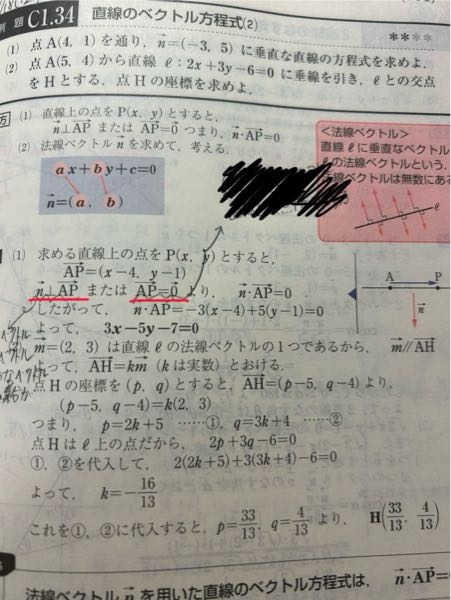 例題 C1.34 直線のベクトル方程式(2) ****
(1) 点A(4, 1)を通り,n⃗=(-3, 5)に垂直な直線の方程式を求めよ.
(2) 点A(5, 4)から直線 ℓ:2x+3y-6=0 に垂線を引き,ℓとの交点
をHとする.点Hの座標を求めよ.
(1) 直線上の点をP(x, y)とすると,
n⃗⊥AP⃗ または AP⃗=0⃗ つまり,n⃗・AP⃗=0
(2) 法線ベクトルn⃗を求めて,考える.
ax+by+c=0
n⃗=(a, b)
<法線ベクトル>
直線ℓに垂直なベクトル
の法線ベクトルという.
法線ベクトルは無数にある
ℓ
(1) 求める直線上の点をP(x, y)とすると,
AP⃗=(x-4, y-1)
n⃗⊥AP⃗ または AP⃗=0⃗ より, n⃗・AP⃗=0
したがって, n⃗・AP⃗=-3(x-4)+5(y-1)=0
よって, 3x-5y-7=0
A P
n⃗
m⃗=(2, 3)は直線ℓの法線ベクトルの1つであるから,
m⃗//AH⃗
って, AH⃗=km⃗ (kは実数)とおける.
点Hの座標を(p, q)とすると,AH⃗=(p-5, q-4)より,
(p-5, q-4)=k(2, 3)
つまり, p=2k+5 ……①, q=3k+4 ……②
点Hはℓ上の点だから, 2p+3q-6=0
①,②を代入して, 2(2k+5)+3(3k+4)-6=0
よって, k=-16/13
これを①,②に代入すると,p=33/13, q=4/13 より, H(33/13, 4/13)
法線ベクトルn⃗を用いた直線のベクトル方程式は, n⃗・AP⃗=